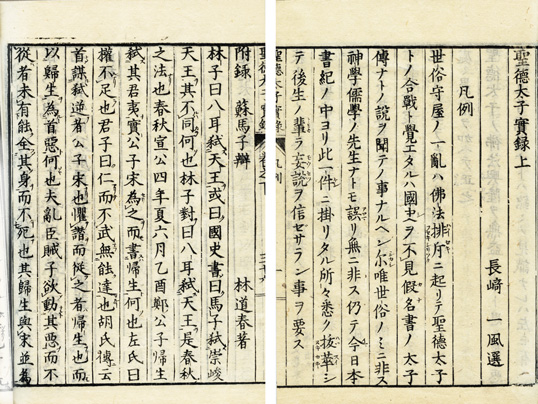 聖德太子實録上
長﨑 一風選
凡例
世俗守屋ノ一亂ハ佛法排斤ニ起リテ聖德太子
トノ合戰ト覺エタルハ國史ヲ不見假名書ノ太子
傳ナトノ説ヲ聞テノ事ナルヘシ尓唯世俗ノミニ非ス
神學儒學ノ先生ナトモ誤リ無ニ非ス仍テ今日本
書紀ノ中ヨリ此ノ件ニ掛リタル所々悉ク抜萃シ
テ後生ノ輩ラ妄説ヲ信セサラン事ヲ要ス
附録 蘇馬子辯
林道春著
林子曰八耳弑天王或曰國史書曰馬子弑崇峻
天王其不同何也林子對曰八耳弑天王是春秋
之法也春秋宣公四年夏六月乙酉鄭公子歸生
弑其君夷實公子宋為之而書歸生何也左氏曰
權不足也君子曰仁而不武無能達也胡氏傳云
首謀弑逆者公子宋也懼譖而從之者歸生也而
以歸生為首惡何也夫亂臣賊子欲動其惡而不
從者未有能全其身而不死也其歸生與宋並為